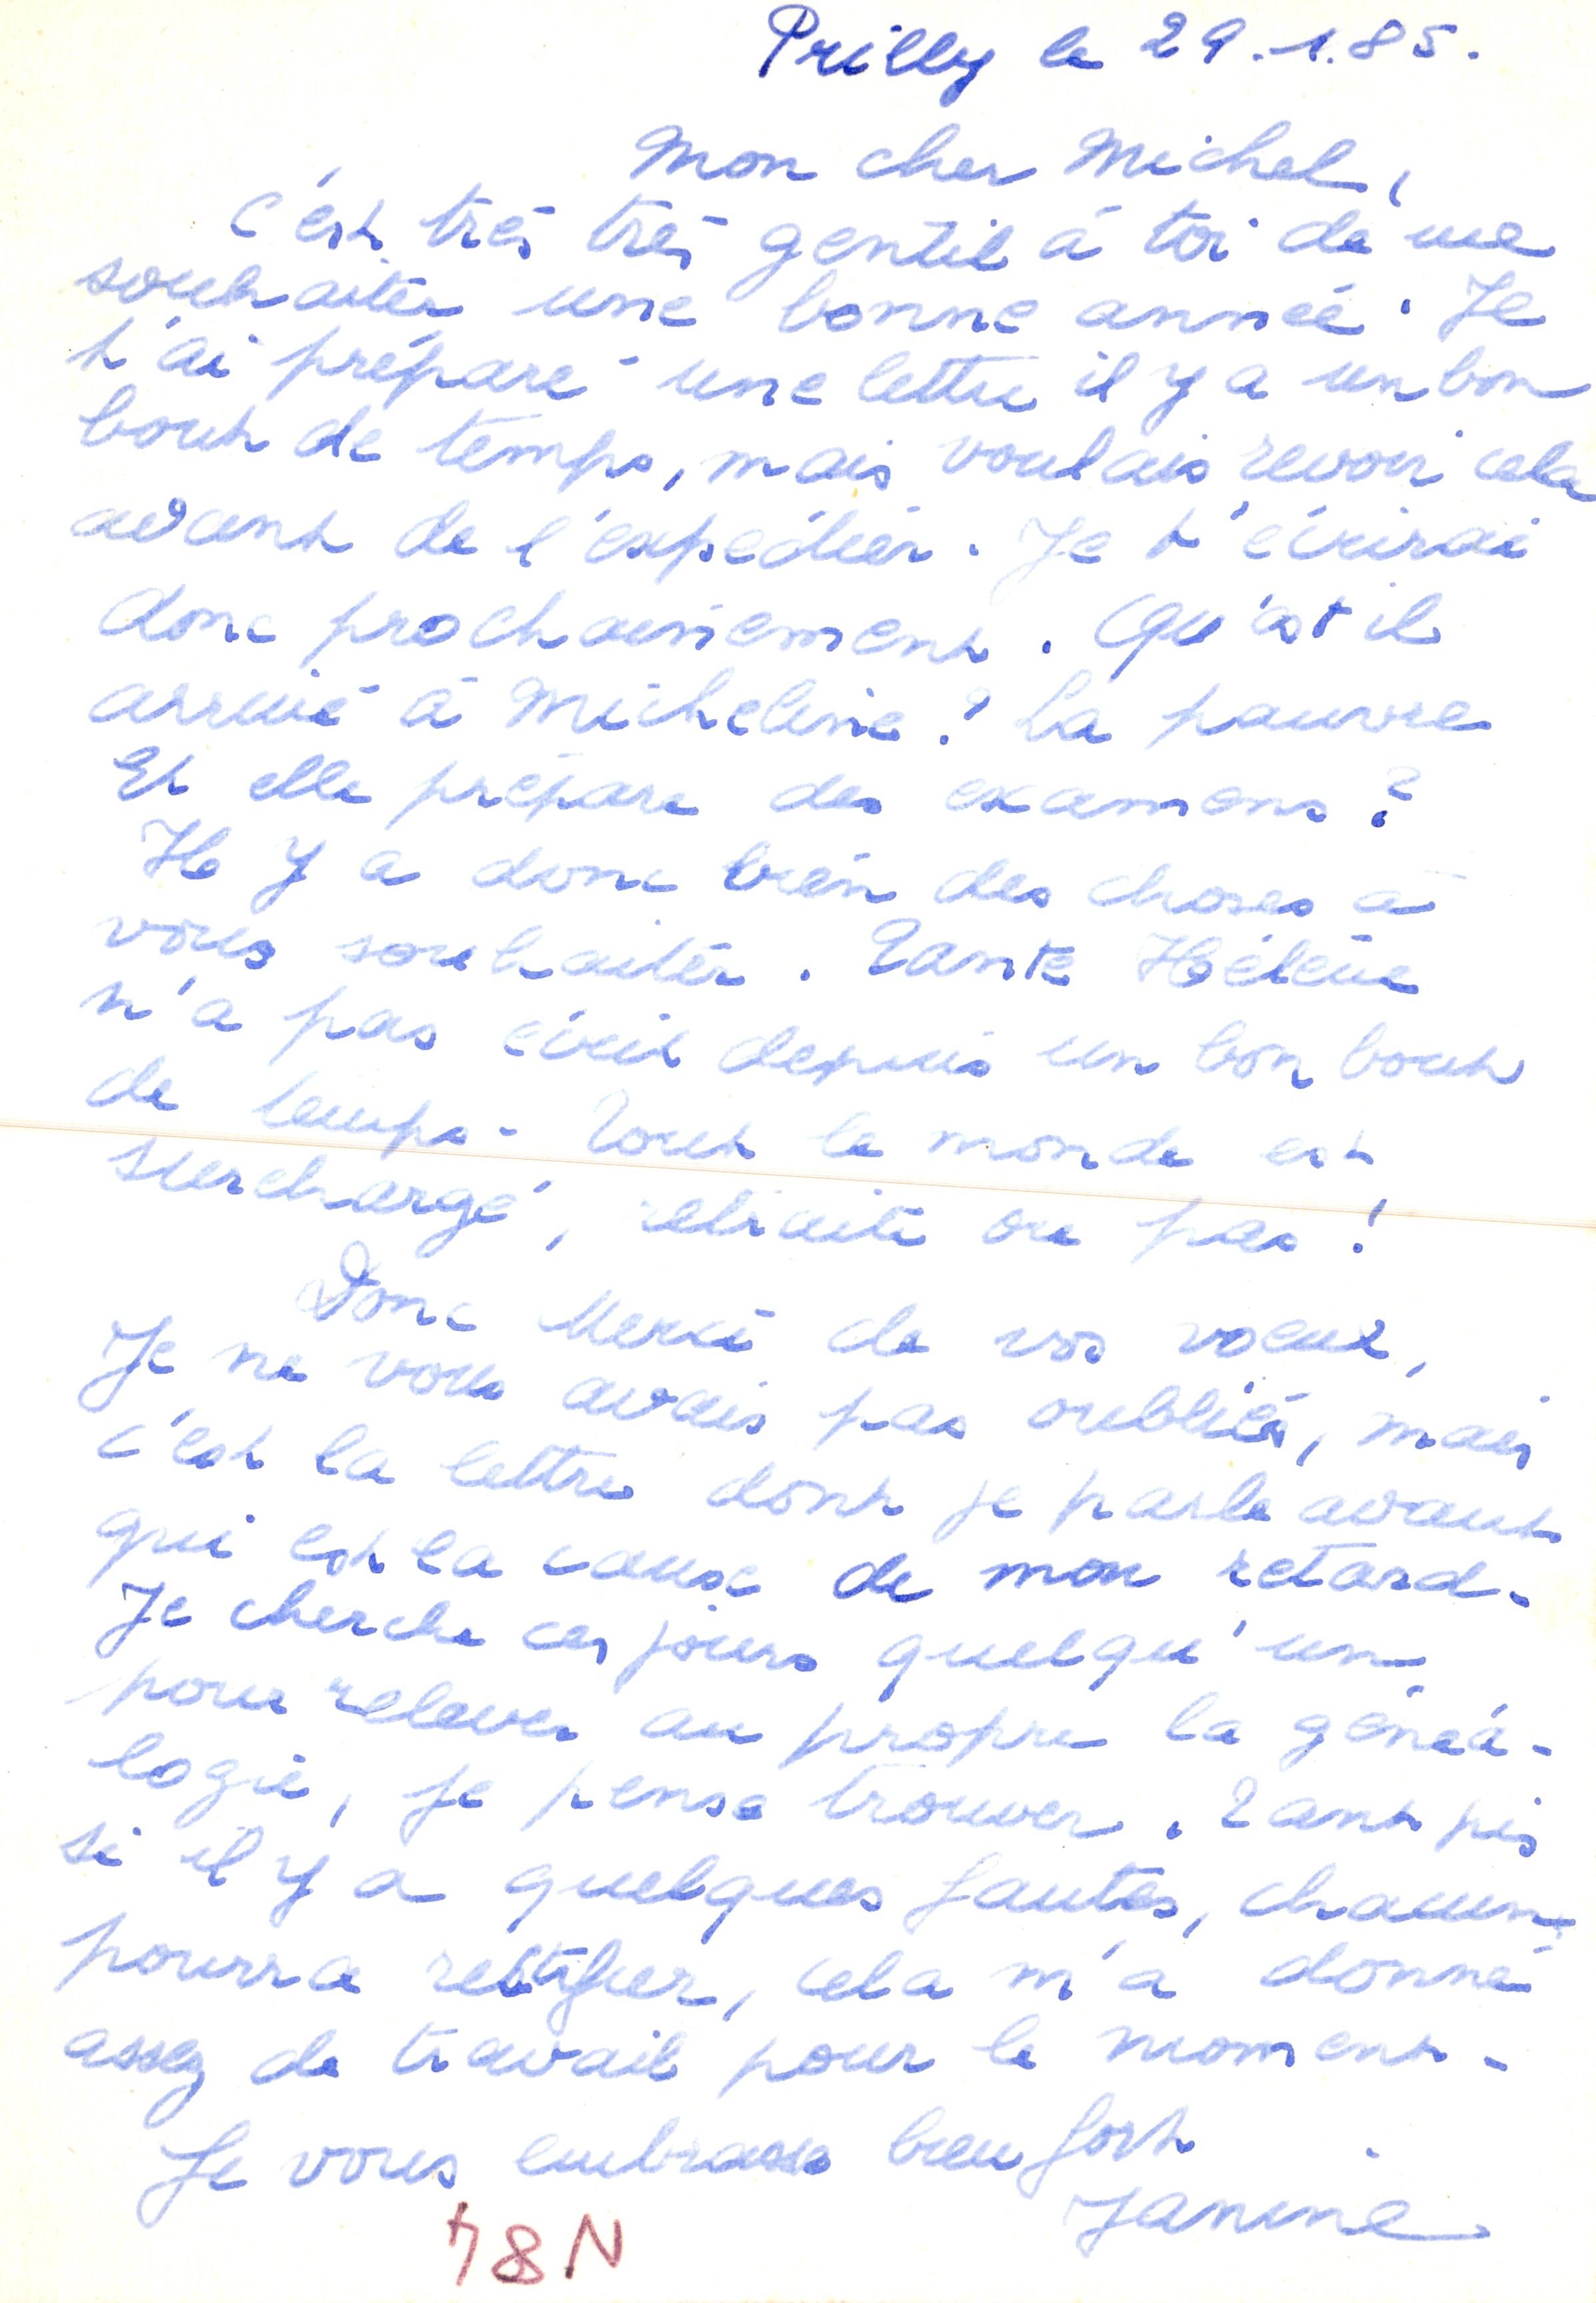 Prilly le 29.1.85.
Mon cher Michel,
c'est très très gentil à toi de me
souhaiter une bonne année. Je
t'ai préparé une lettre il y a un bon
bout de temps, mais voulais revoir cela
avant de l'expédier. Je t'écrirai
donc prochainement. Qu'est il
arrivé à Micheline? La pauvre
Et elle prépare des examens?
Il y a donc bien des choses à
vous souhaiter. Tante Hélène
n'a pas écrit depuis un bon bout
de temps. Tout le monde est
surchargé, retraité ou pas!
Donc Merci de vos voeux,
Je ne vous avais pas oubliés, mais
c'est la lettre dont je parle avant
qui est la cause de mon retard.
Je cherche ces jours quelqu'un
pour relever au propre la généa-
logie, je pense trouver. Tant pis
si il y a quelques fautes, chacun
pourra rectifier, cela m'a donné
assez de travail pour le moment.
Je vous embrasse bien fort
Janine
N84